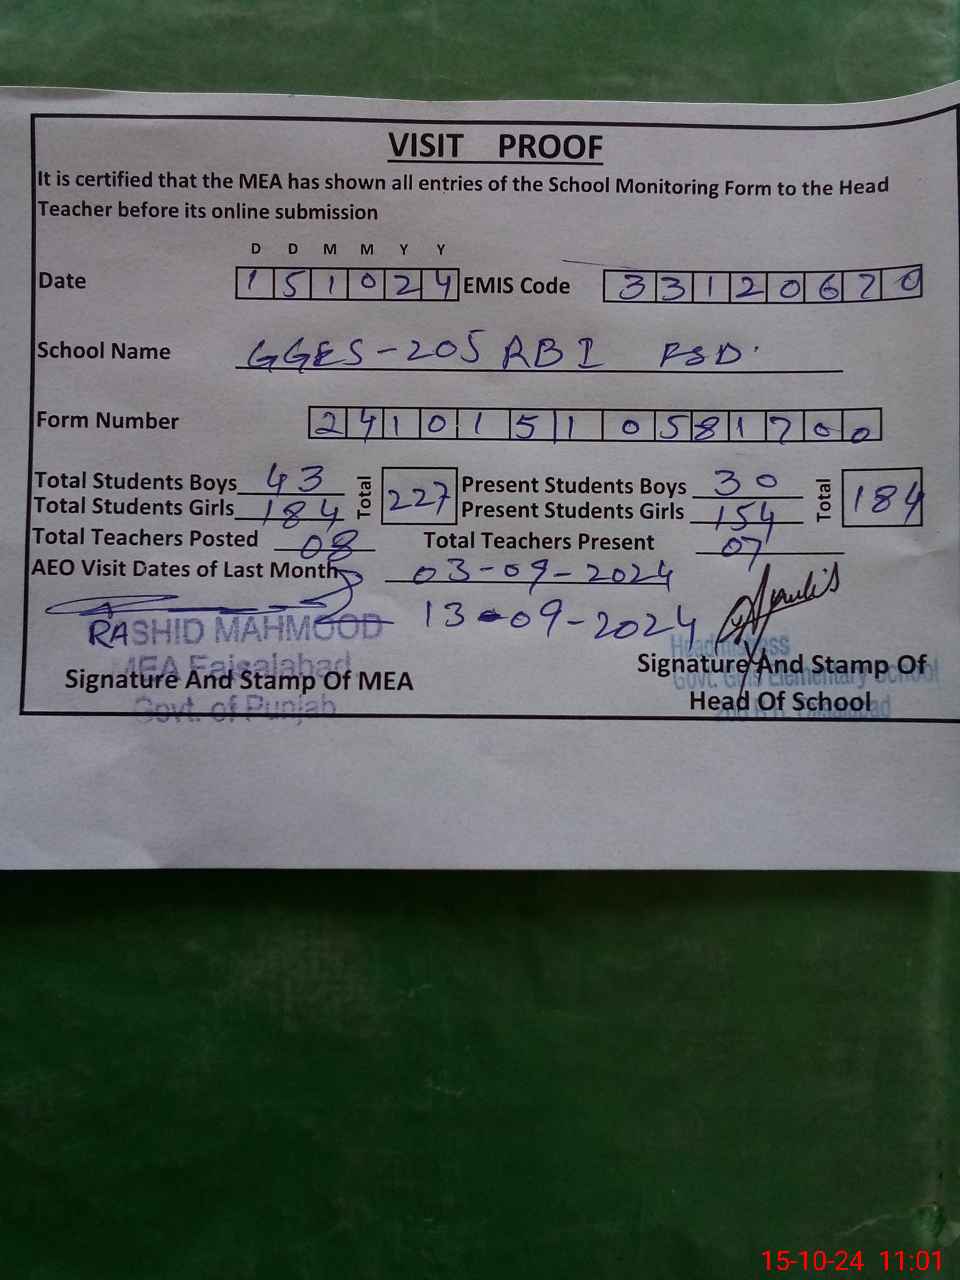 VISIT PROOF
It is certified that the MEA has shown all entries of the School Monitoring Form to the Head
Teacher before its online submission
D D M M Y Y
Date 1 5 1 0 2 4 EMIS Code 3 3 1 2 0 6 7 0
School Name GGES-205 RB I FSD.
Form Number 2 4 1 0 1 5 1 0 5 8 1 7 0 0
Total Students Boys 43 Total 227 Present Students Boys 30 Total 184
Total Students Girls 184 Present Students Girls 154
Total Teachers Posted 08 Total Teachers Present 07
AEO Visit Dates of Last Month 03-09-2024
13-09-2024
RASHID MAHMOOD
MEA Faisalabad
Govt. of Punjab
Signature And Stamp Of MEA
Headmistress
Govt. Girls Elementary School
Signature And Stamp Of
Head Of School
15-10-24 11:01